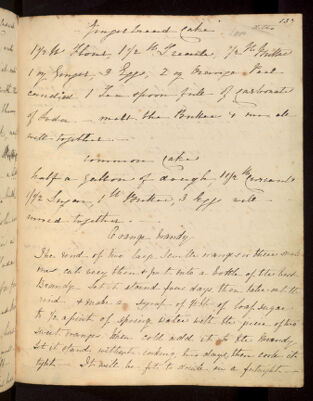 Gingerbread Cake
1 1/2 lb Flour, 1 1/2 lb Treacle, 1/2 lb Butter
1 oz Ginger, 3 Eggs, 2 oz Orange Peel
candied 1 Tea spoon full of carbonate
of Soda melt the Butter & mix all
well together
common cake
half a gallon of dough, 1 1/2 lb currants
Sugar, 1 lb Butter, 3 Eggs well
mixed together
Orange Brandy
The rind of two large Seville oranges & three
cut very thin & put into a bottle of the best
Brandy let it stand four days then take out the
rind & make a syrup of loaf sugar
to a pint of spring water with the juice of two
sweet oranges when cold add it to the Brandy
let it stand without corking, two days, then cork it
tight It will be fit to drink in a fortnight